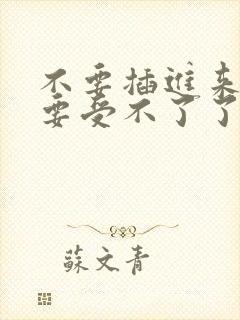 不要插進来
要受不了了
蘇文青